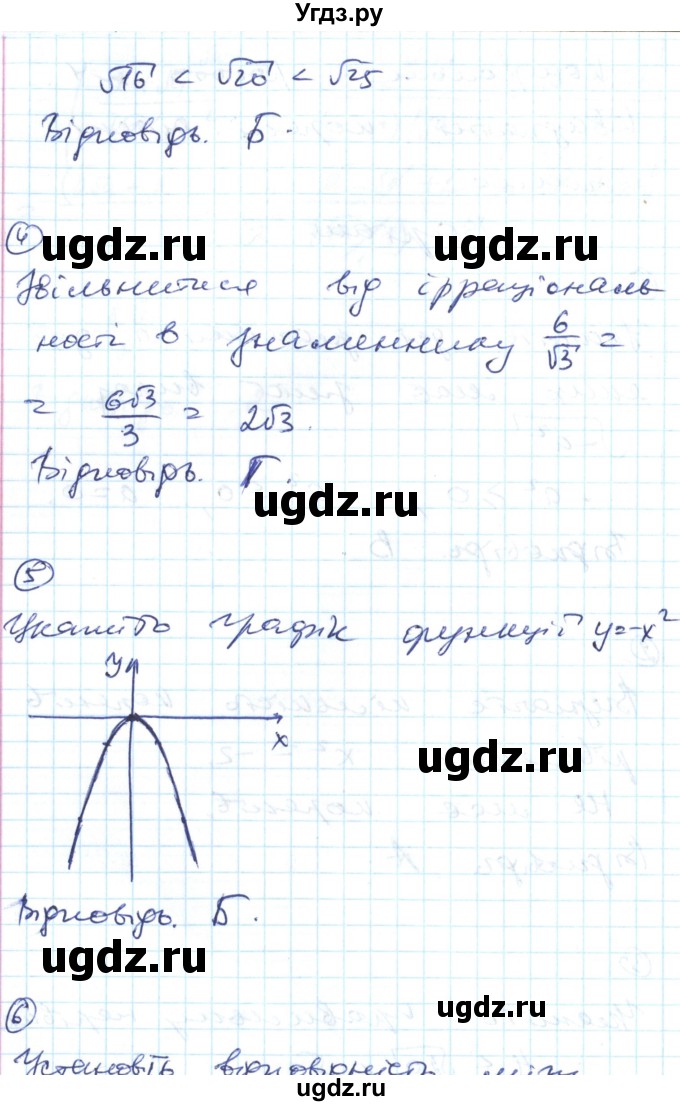 Угдз.ру
√16 < √20 < √25
Відповідь. Б.
4
ugdz.ru
ugdz.ru
Звільнитися від ірраціональ
ності в знаменнику 6/√3 =
= 6√3/3 = 2√3.
Відповідь. Г.
ugdz.ru
5
Укажіть графік функції y=-x²
y
x
ugdz.ru
Відповідь. Б.
ugdz.ru
6
ugdz.ru
Установіть відповідність між
ugdz.ru